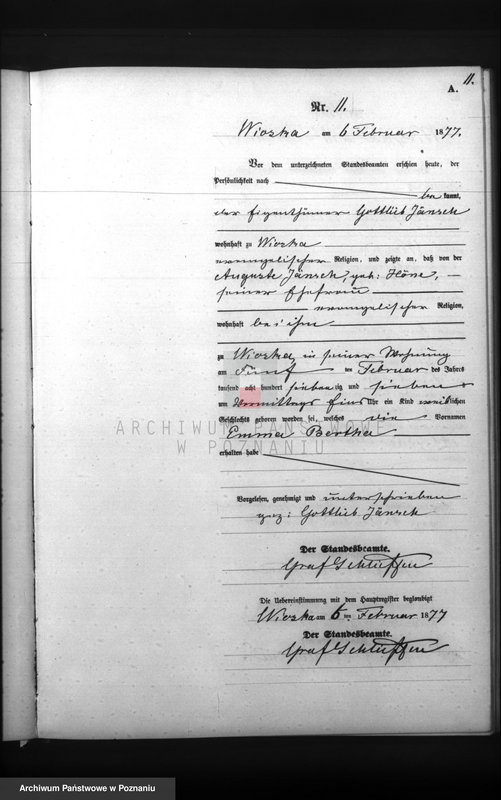 11.
A.
Nr. 11.
Wioska am 6 Februar 1877.
Vor dem unterzeichneten Standesbeamten erschien heute, der
Persönlichkeit nach
be kannt,
der Eigenthümer Gottlieb Jänsch
wohnhaft zu Wioska
evangelischer Religion, und zeigte an, daß von der
Auguste Jänsch, geb: Höne,
seiner Ehefrau
evangelischer Religion,
wohnhaft bei ihm
zu Wioska, in seiner Wohnung
am Fünf ten Februar des Jahrs
tausend acht hundert sieben zig und sieben
um Vormittags Eins Uhr ein Kind weib lichen
Geschlechts geboren worden sei, welches die Vornamen
Emma Bertha
erhalten habe
Vorgelesen, genehmigt und unterschrieben
gez: Gottlieb Jänsch
Der Standesbeamte.
Graf Schlieffen
Die Uebereinstimmung mit dem Hauptregister beglaubigt
Wioska am 6 ten Februar 1877
Der Standesbeamte.
Graf Schlieffen
ARCHIWUM PAŃSTWOWE
W POZNANIU
Archiwum Państwowe w Poznaniu